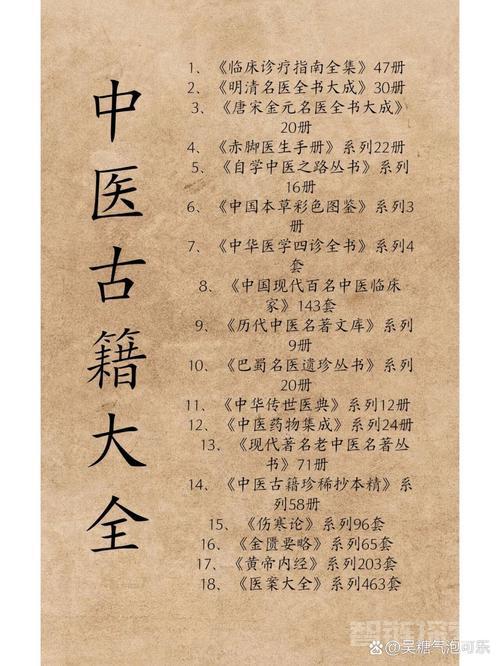 中医古籍大全
1、《临床诊疗指南全集》47册
2、《明清名医全书大成》30册
3、《唐宋金元名医全书大成》
20册
4、《赤脚医生手册》系列22册
5、《自学中医之路丛书》系列
16册
6、《中国本草彩色图鉴》系列3
册
7、《中华医学四诊全书》系列4
套
8、《中国现代百名中医临床
家》143套
9、《历代中医名著文库》系列
9册
10、《巴蜀名医遗珍丛书》系列
20册
11、《中华传世医典》系列12册
12、《中医药物集成》系列24册
13、《现代著名老中医名著丛
书》71册
14、《中医古籍珍稀抄本精》系
列58册
15、《伤寒论》系列96套
16、《金匮要略》系列65套
17、《黄帝内经》系列203套
18、《医案大全》系列463套
@吴糖气泡可乐